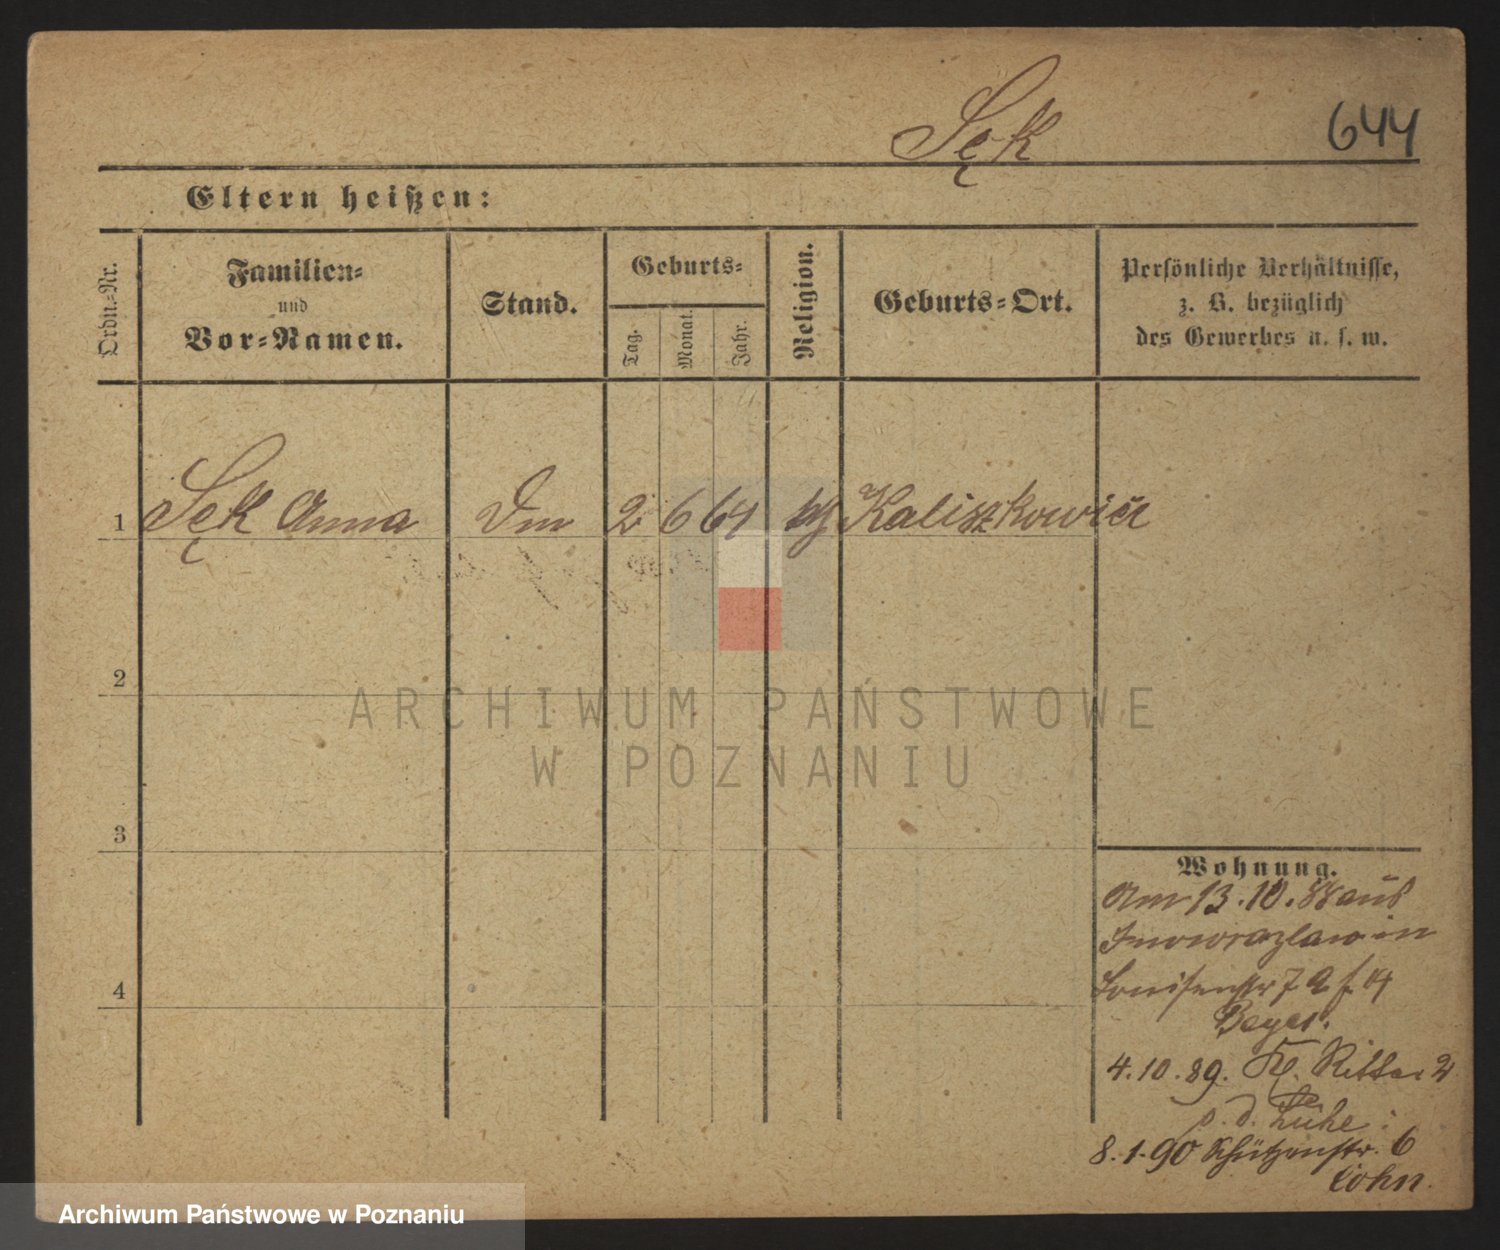 Sęk
644
Eltern heißen:
Ordn.-Nr.
Familien-
und
Vor-Namen.
Stand.
Geburts-
Tag.
Monat.
Jahr.
Religion.
Geburts-Ort.
Persönliche Verhältnisse,
z. B. bezüglich
des Gewerbes u. s. w.
1 Sęk Anna Dm 2 6 64 Kaliszkowice
2
3
4
Wohnung.
Am 13.10.88 aus
Inowrazlaw in
Louisenstr 7a
Beyer.
4.10.89. Kl. Ritter 2
p. d. Lühe
8.1.90 Schützenstr. 6
Cohn.
ARCHIWUM PAŃSTWOWE
W POZNANIU
Archiwum Państwowe w Poznaniu